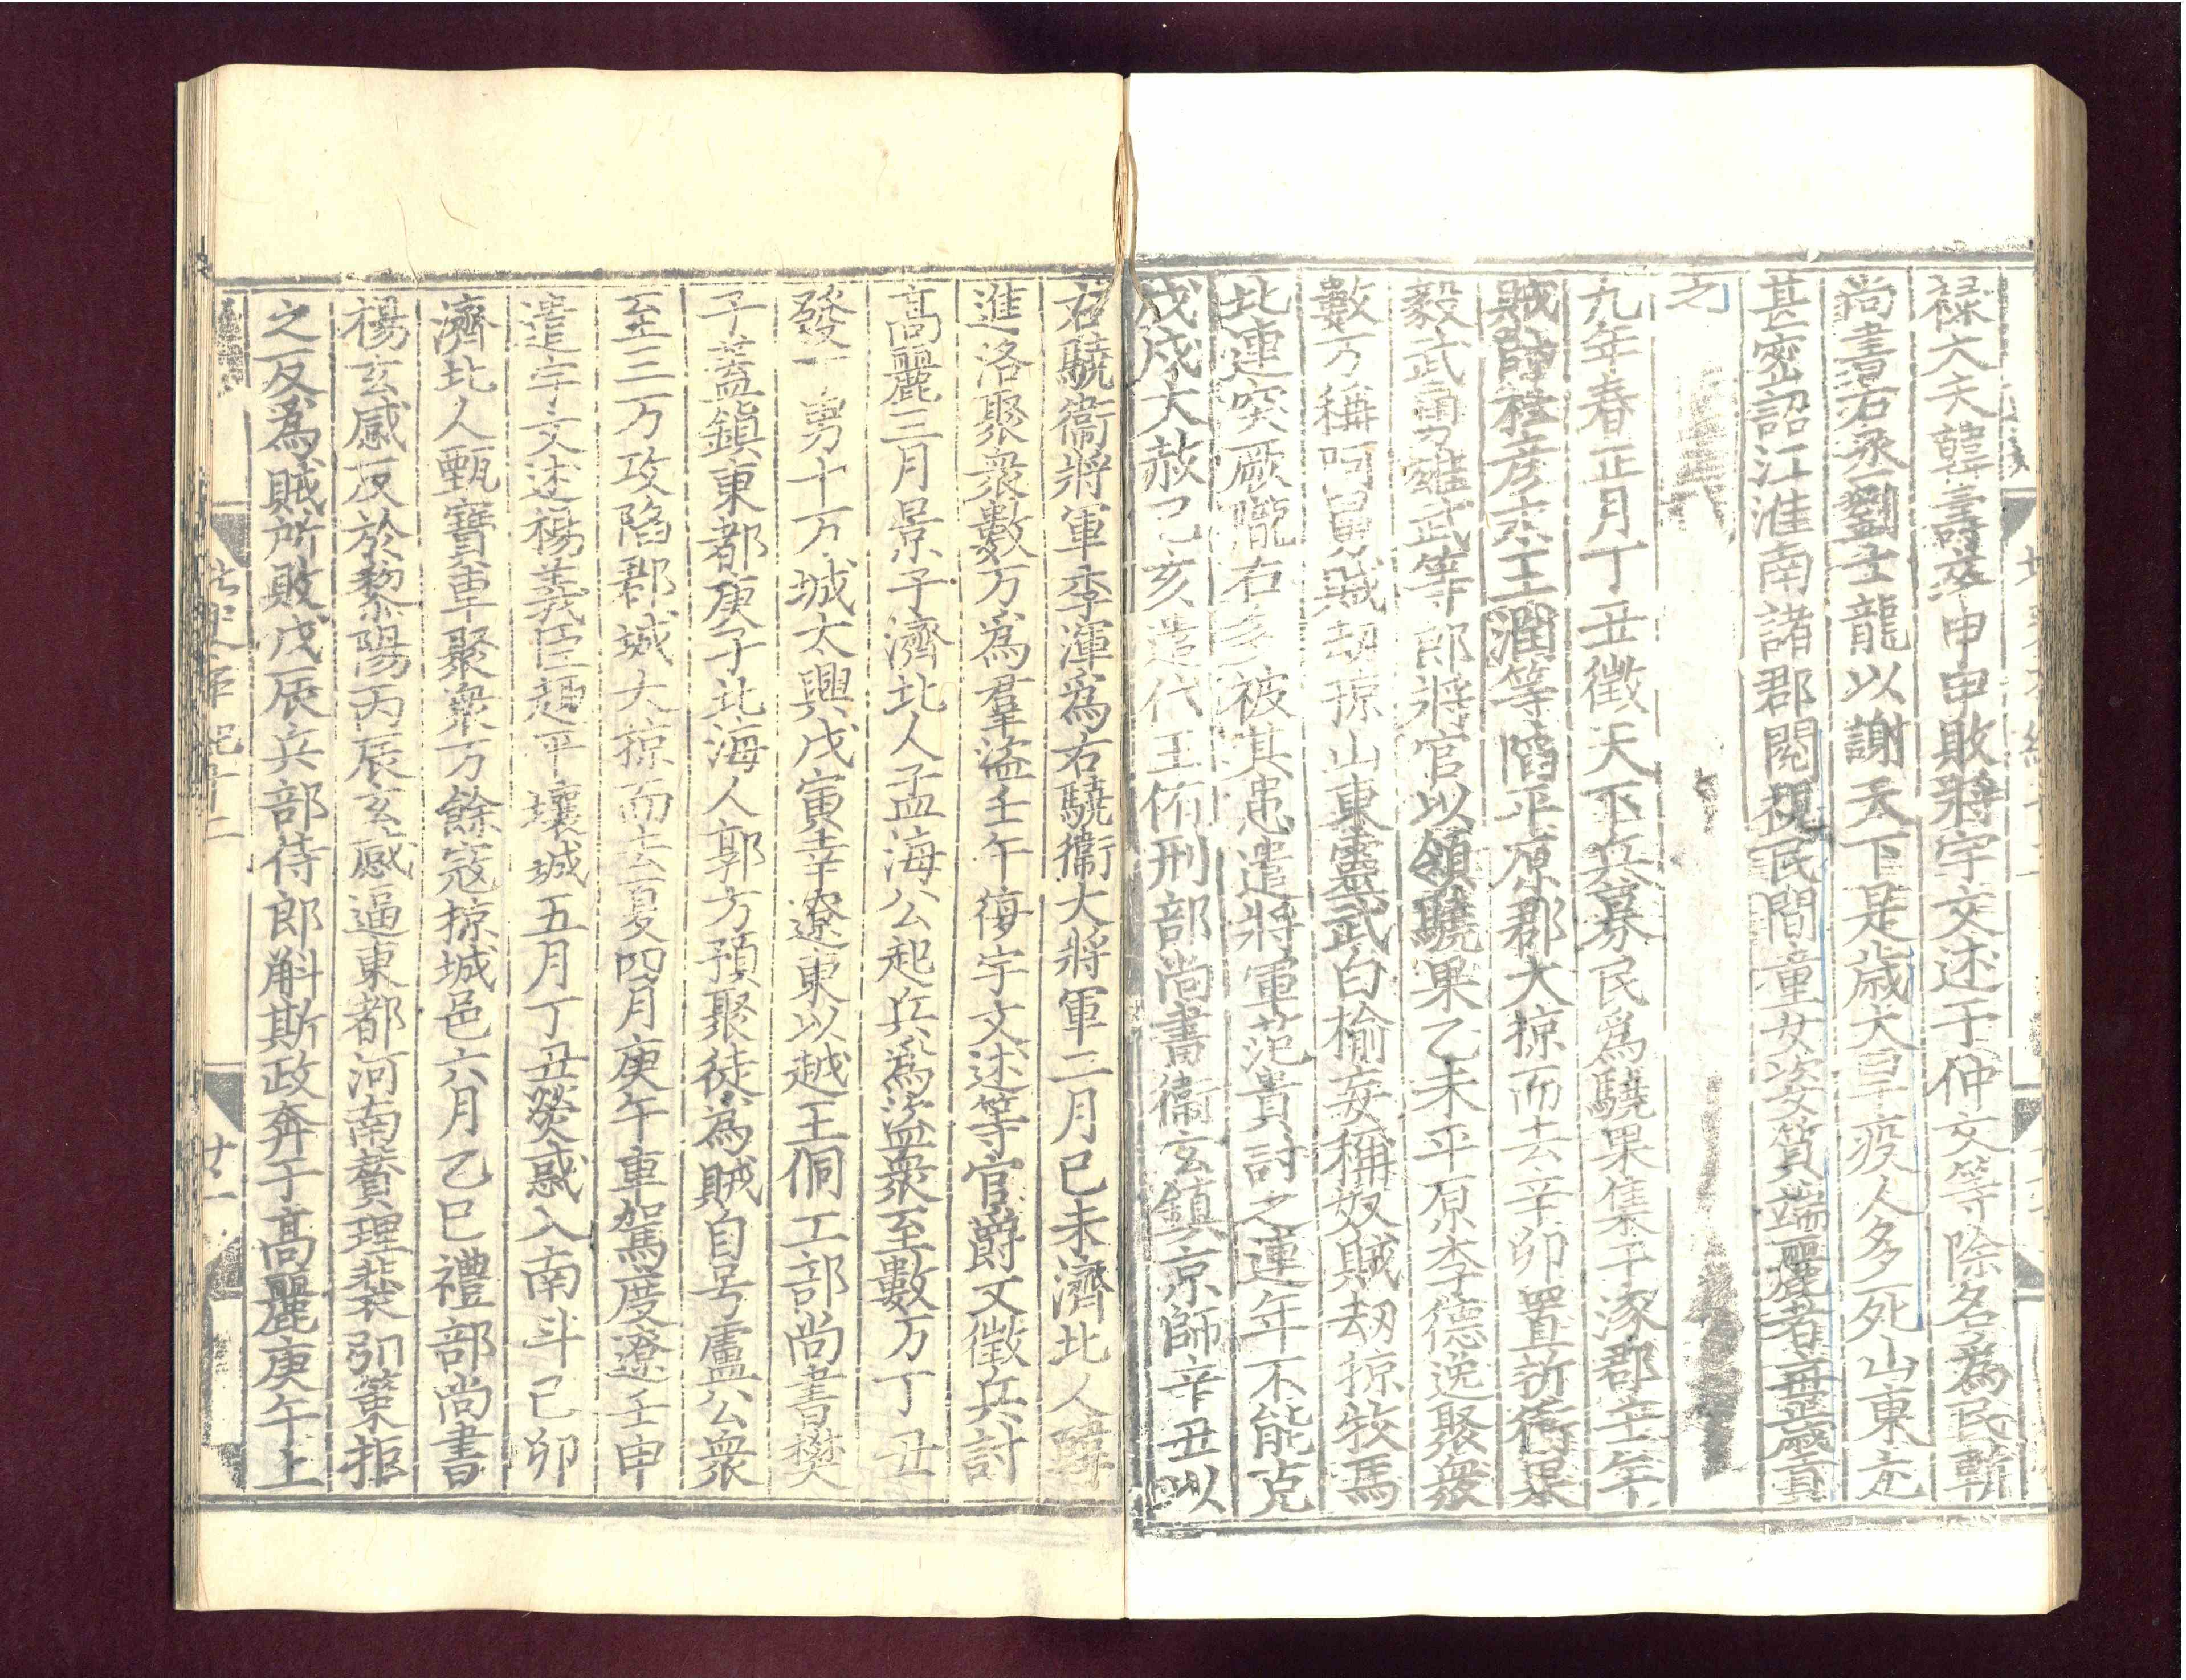 祿大夫韓壽卒甲申敗將宇文述于仲文等除名爲民斬
尚書右丞劉士龍以謝天下是歲大旱疫人多死山東尤
甚密詔江淮南諸郡閱視民間童女姿質端麗者每歲貢
之
九年春正月丁丑徵天下兵募民爲驍果集于涿郡壬午
賊帥杜彦冰王潤等陷平原郡大掠而去辛卯置折衝果
毅武勇雄武等郎將官以領驍果乙未平原李德逸聚衆
數万稱阿舅賊劫掠山東靈武白榆妄稱奴賊劫掠牧馬
北連突厥隴右多被其患遣將軍范貴討之連年不能克
戊戌大赦己亥遣代王侑刑部尚書衞玄鎮京師辛丑以
右驍衞將軍李渾爲右驍衞大將軍二月己未濟北人韓
進洛聚衆數万爲羣盜壬午復宇文述等官爵又徵兵討
高麗三月景子濟北人孟海公起兵爲盜衆至數万丁丑
發丁男十万城大興戊寅幸遼東以越王侗工部尚書樊
子蓋鎮東都庚子北海人郭方預聚徒爲賊自号盧公衆
至三万攻陷郡城大掠而去夏四月庚午車駕度遼壬申
遣宇文述楊義臣趣平壤城五月丁丑熒惑入南斗己卯
濟北人甄寶車聚衆万餘寇掠城邑六月乙巳禮部尚書
楊玄感反於黎陽丙辰玄感逼東都河南贊理裴弘策拒
之反爲賊所敗戊辰兵部侍郎斛斯政奔于高麗庚午上
北史本紀十二
廿一